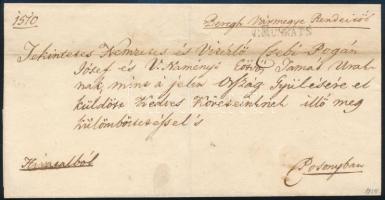 1510 Beregh Vármegye Rendeitöl
MUNKATS
Tekintetes Nemzetes és Vitézlö Pogán
Jósef és V. Naményi Eötvös Tamás Urak-
nak, mint a jelen Ország Gyülésére el
küldött Kedves Követeinknek illö meg
külömböztetéssel is
Hivatalból Posonyban